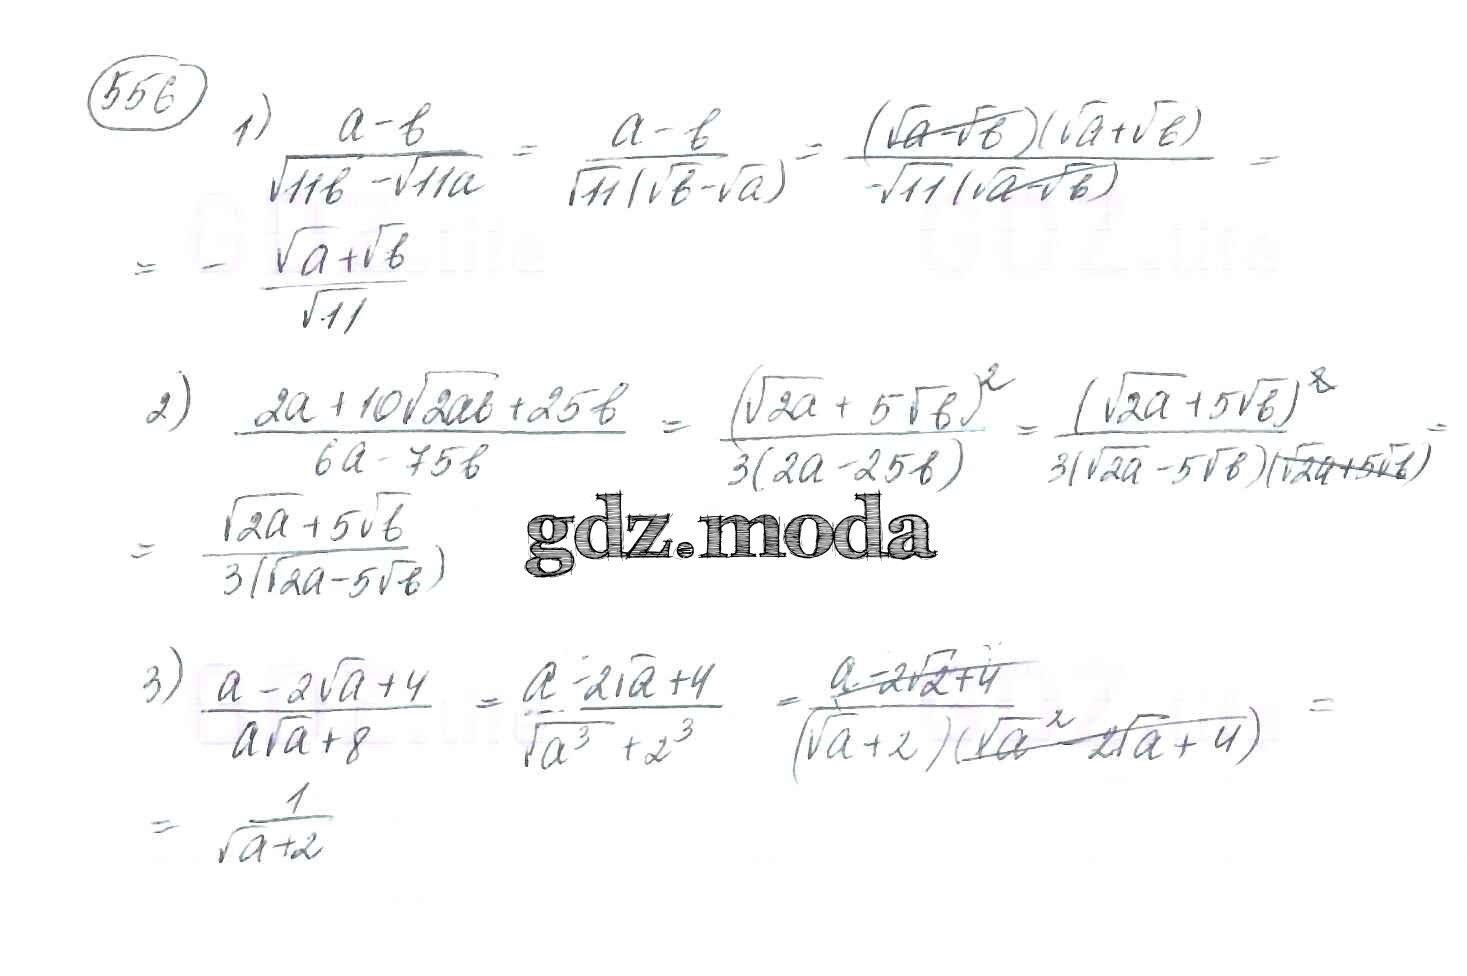 556
1) (a-b)/(√11b - √11a) = (a-b)/(√11(√b-√a)) = ((√a-√b)(√a+√b))/(-√11(√a-√b)) =
= - (√a+√b)/√11
2) (2a+10√2ab+25b)/(6a-75b) = (√2a+5√b)²/(3(2a-25b)) = (√2a+5√b)²/(3(√2a-5√b)(√2a+5√b)) =
= (√2a+5√b)/(3(√2a-5√b))
gdz.moda
3) (a-2√a+4)/(a√a+8) = (a-2√a+4)/(√a³+2³) = (a-2√2+4)/((√a+2)(√a²-2√a+4)) =
= 1/(√a+2)